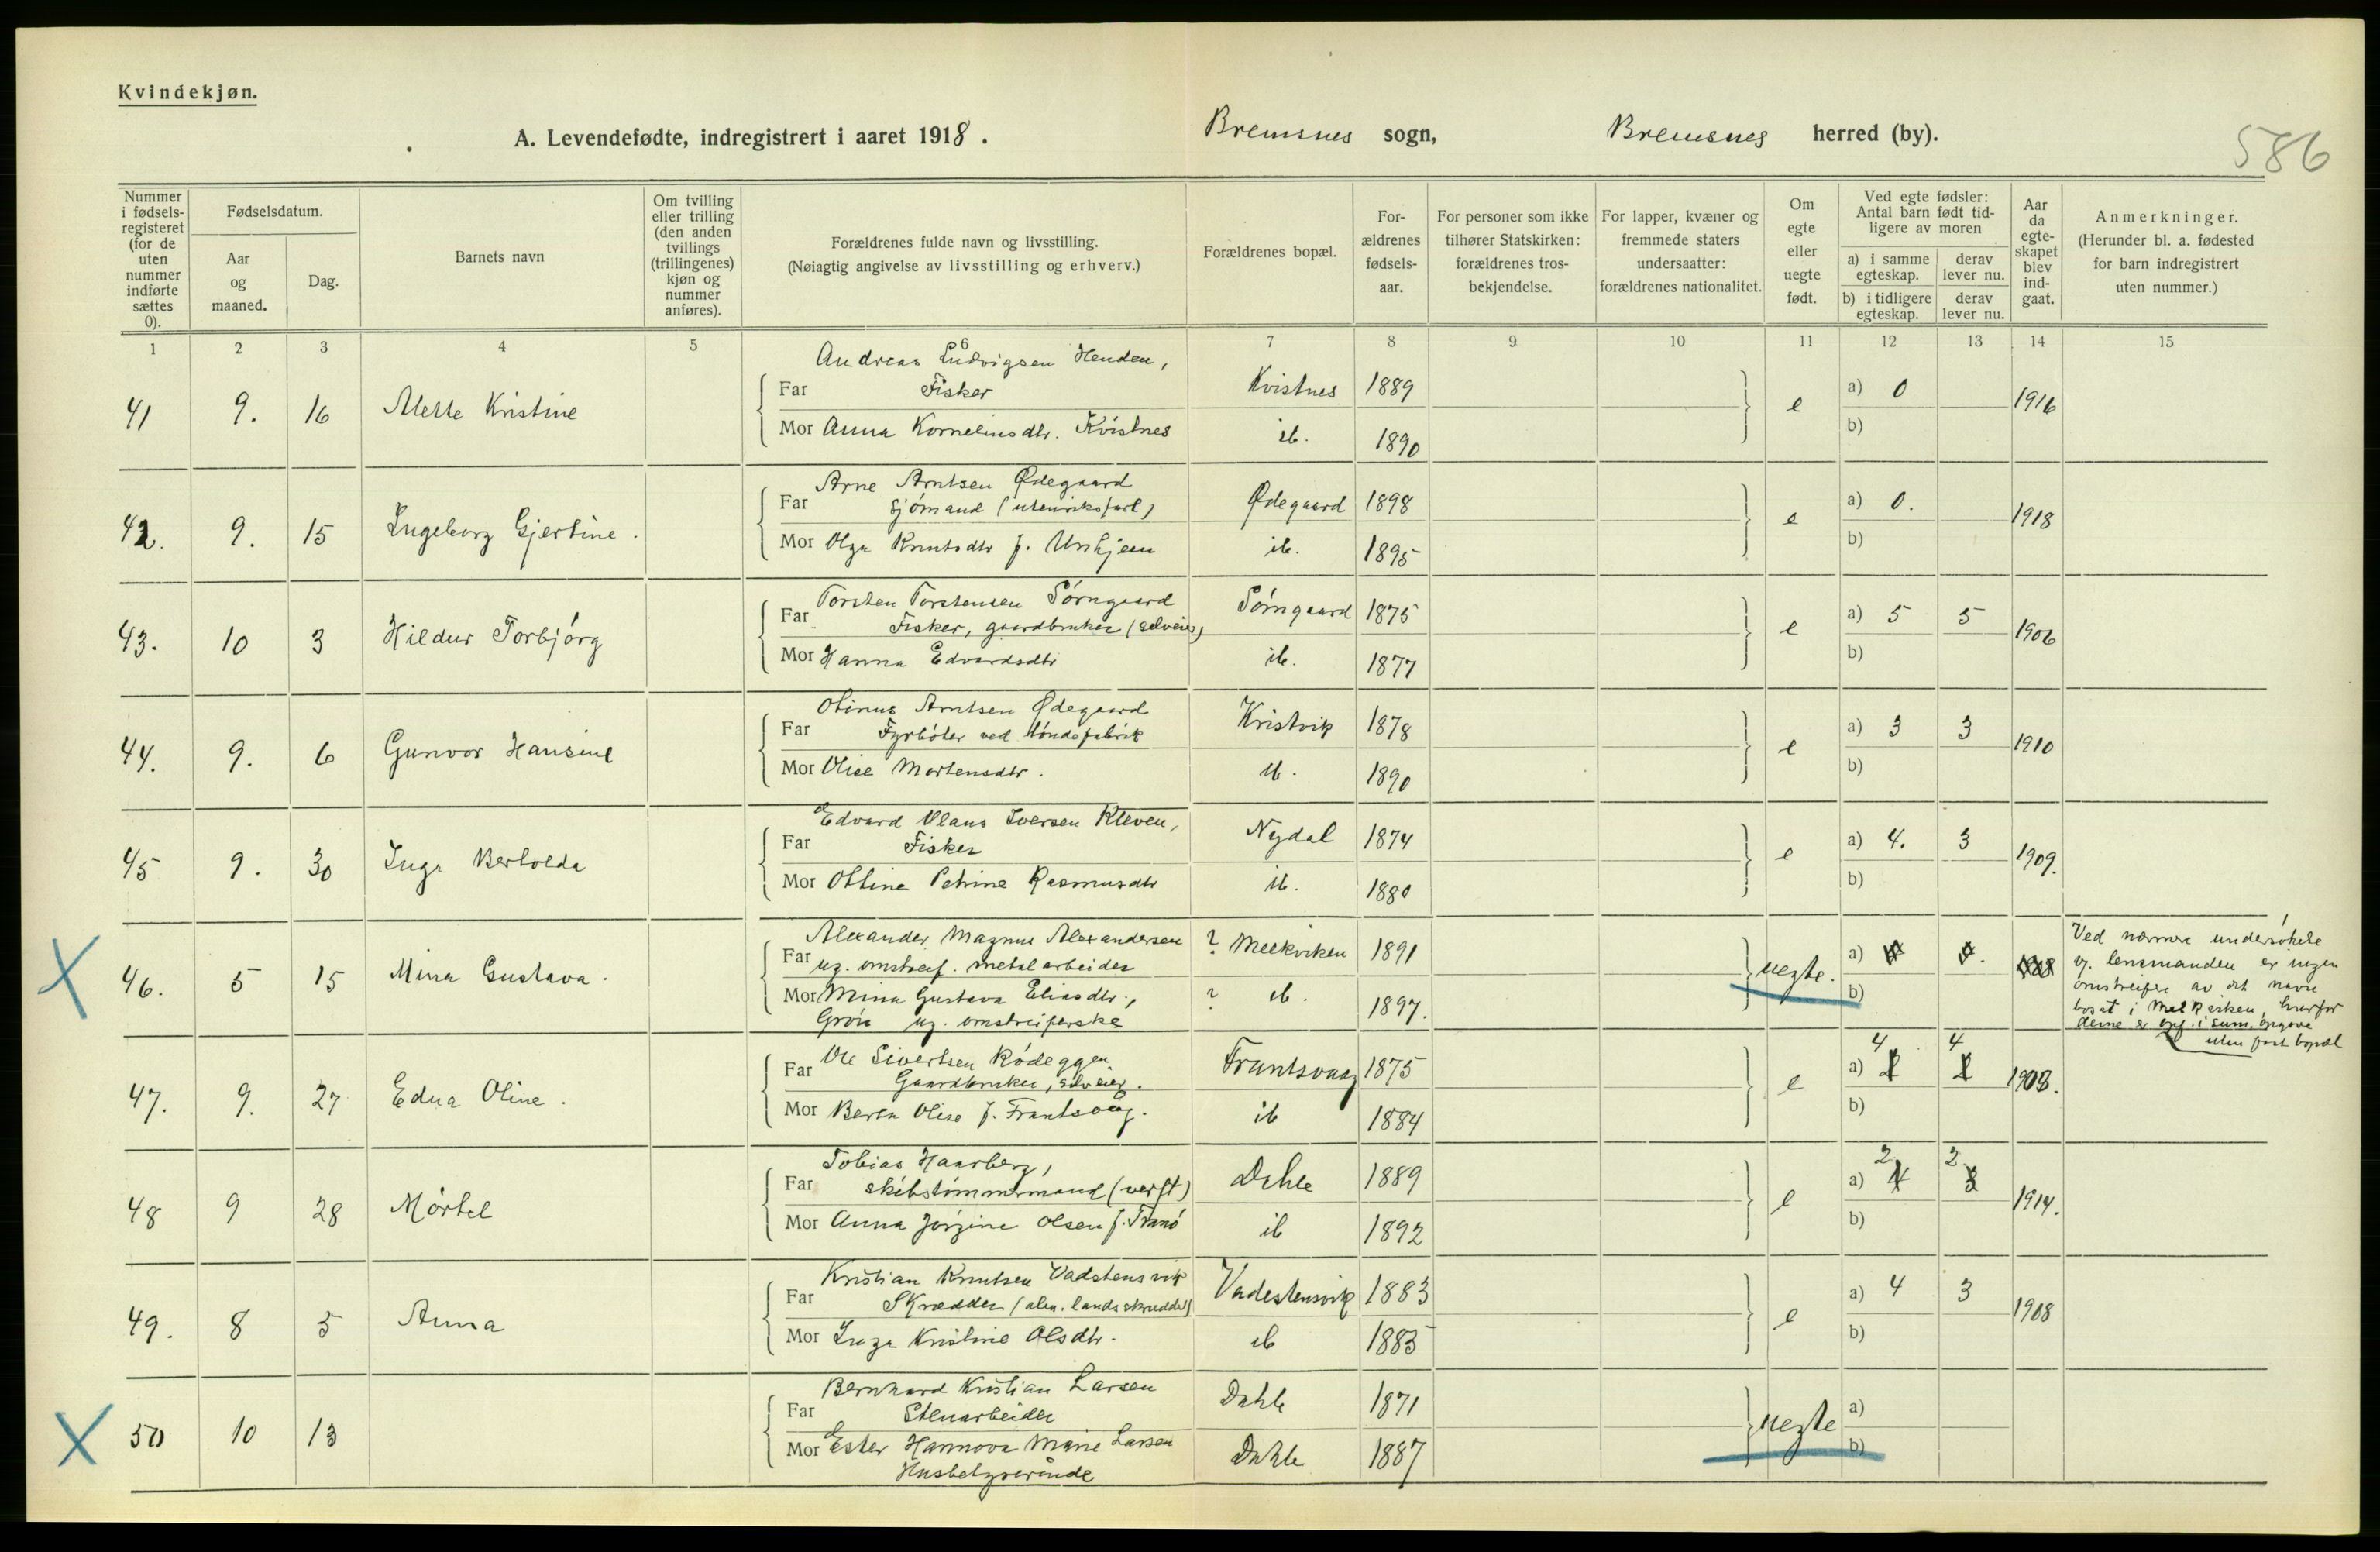 Kvindekjøn.
A. Levendefødte, indregistrert i aaret 1918.
Bremsnes sogn, Bremsnes herred (by).
586
Nummer i fødsels-registeret (for de uten nummer indførte sættes 0).
Fødselsdatum.
Aar og maaned.
Dag.
Barnets navn
Om tvilling eller trilling (den anden tvillings (trillingenes) kjøn og nummer anføres).
Forældrenes fulde navn og livsstilling.
(Nøiagtig angivelse av livsstilling og erhverv.)
Forældrenes bopæl.
For-ældrenes fødsels-aar.
For personer som ikke tilhører Statskirken: forældrenes tros-bekjendelse.
For lapper, kvæner og fremmede staters undersaatter: forældrenes nationalitet.
Om egte eller uegte født.
Ved egte fødsler: Antal barn født tid-ligere av moren
a) i samme egteskap.
derav lever nu.
b) i tidligere egteskap.
derav lever nu.
Aar da egte-skapet blev ind-gaat.
Anmerkninger.
(Herunder bl. a. fødested for barn indregistrert uten nummer.)
1 2 3 4 5 6 7 8 9 10 11 12 13 14 15
Andreas Ludvigsen Henden,
41 9. 16 Mette Kristine Far Fisker Kvistnes 1889 e a) 0 1916
Mor Anna Korneliusdtr. Kvistnes ib. 1890 b)
Arne Arntsen Ødegaard
42. 9. 15 Ingeborg Gjertine. Far Sjømand (utenriksfart) Ødegaard 1898 e a) 0. 1918
Mor Olga Knutsdtr f. ib. 1895 b)
Torsten Torstensen Sørngaard
43. 10 3 Hildur Torbjörg Far Fisker, gaardbruker (selveier) Sørngaard 1875 e a) 5 5 1906
Mor Hanna Edvardsdtr ib. 1877 b)
Olinus Arntsen Ødegaard
44. 9. 6 Gunvor Hansine Far Fyrbøter ved tøndefabrik Kristvik 1878 e a) 3 3 1910
Mor Olise Mortensdtr. ib. 1890 b)
Edvard Olaus Iversen Kleven,
45 9. 30 Inga Bertolda Far Fisker Nydal 1874 e a) 4. 3 1909.
Mor Oltina Petrine Rasmusdtr ib. 1880 b)
Alexander Magnus Alexandersen
46. 5 15 Mina Gustava. Far ug. omstreif. metalarbeider ? Melkvirken 1891 uegte. a)
Mor Mina Gustava Eliasdtr., ? ib. 1897. b)
Grön ug. omstreiferske
Ved nærmere undersøkelse
lensmanden er ingen
omstreifere av det navn
bosat i hvorfor
denne er opf. i sum. opgave
uten fast bopæl
Ole Sivertsen Rödeggen
47. 9. 27 Edna Oline. Far Gaardbruker, selveier. Frantsvaag 1875 e a) 4 4 1903.
Mor Berta Olise f. Frantsvaag. ib 1884 b)
Tobias Haarberg,
48 9 28 Mörtel Far skibstømmermand (verft) Dahle 1889 e a) 2 2 1914.
Mor Anna Jörgine Olsen f. ib 1892 b)
Kristian Knutsen Vadstensvik
49. 8 5 Anna Far Skrædder (alm. landsskrædder) Vadestensvik 1883 e a) 4 3 1908
Mor Inga Kristine Olsdtr. ib 1885 b)
Bernhard Kristian Larsen
50 10 13 Far Stenarbeider Dahle 1871 uegte a)
Mor Ester Hannova Marie Larsen Dahle 1887 b)
Husbestyrerinde